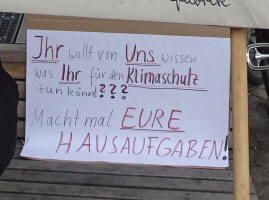 Ihr wollt von Uns wissen
was Ihr für den Klimaschutz
tun könnt???
Macht mal EURE
HAUSAUFGABEN!